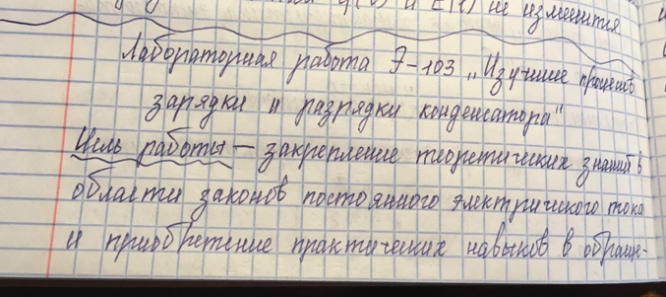 и E(t) не изменится
Лабораторная работа Э-103 „Изучение процессов
зарядки и разрядки конденсатора"
Цель работы — закрепление теоретических знаний в
области законов постоянного электрического тока
и приобретение практических навыков в обраще-